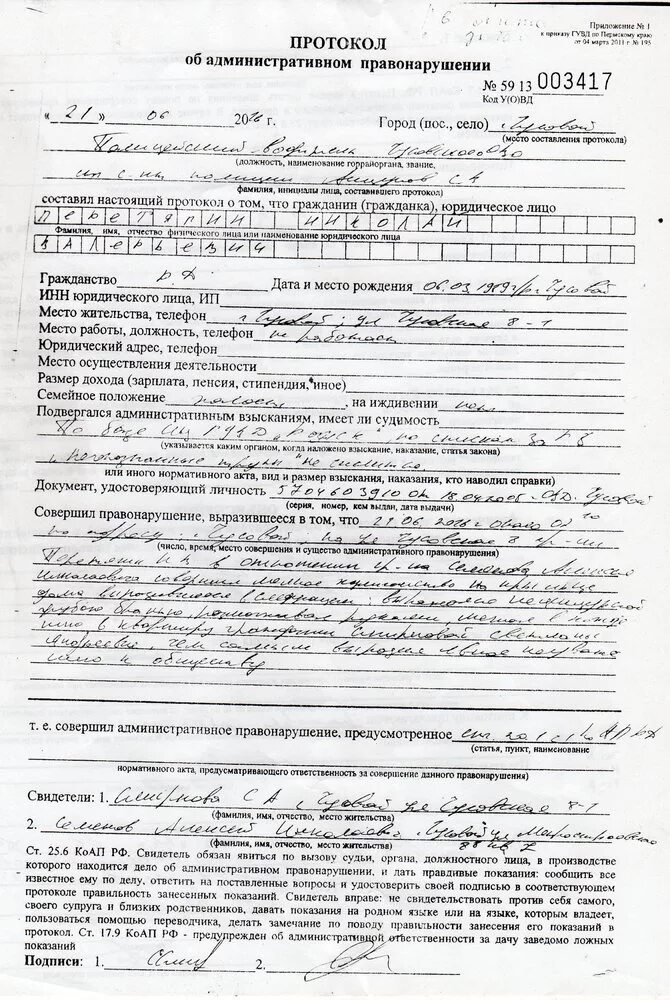 Приложение № 1
к приказу ГУВД по Пермскому краю
от 04 марта 2011 г № 195
ПРОТОКОЛ
об административном правонарушении
№ 59 13 003417
Код У(О)ВД
« 21 » 06 2016 г. Город (пос., село) г. Чусовой
(место составления протокола)
Полицейский
(должность, наименование горрайоргана, звание,
полиции С А
фамилия, инициалы лица, составившего протокол)
составил настоящий протокол о том, что гражданин (гражданка), юридическое лицо
Перетягин Николай
Фамилия, имя, отчество физического лица или наименование юридического лица
Валерьевич
Гражданство РФ Дата и место рождения 06.03.1969 г/р г. Чусовой
ИНН юридического лица, ИП
Место жительства, телефон г. Чусовой, ул Чусовская 8-1
Место работы, должность, телефон не работает
Юридический адрес, телефон
Место осуществления деятельности
Размер дохода (зарплата, пенсия, стипендия, иное)
Семейное положение холост, на иждивении нет
Подвергался административным взысканиям, имеет ли судимость
По базе ИЦ ГУВД
(указывается каким органом, когда наложено взыскание, наказание, статья закона)
"Неопознанные трупы" не
или иного нормативного акта, вид и размер взыскания, наказания, кто наводил справки)
Документ, удостоверяющий личность 5704603910 от 18.04.2005 ОВД Чусовой
(серия, номер, кем выдан, дата выдачи)
Совершил правонарушение, выразившееся в том, что 21.06.2016 г около
по адресу: г. Чусовой, ул Чусовская 8 гр-нин
(число, время, место совершения и существо административного правонарушения)
Перетягин Н.В. в отношении гр-на Семенова Алексея
Николаевича совершил мелкое хулиганство на крыльце
дома выразившееся в следующем: выражался нецензурной
грубой бранью размахивал руками,
в квартиру гражданки Смирновой Светланы
Андреевны, чем самым выразил явное неуваже
ние к обществу
т. е. совершил административное правонарушение, предусмотренное ст. 20.1 ч 1 КоАП РФ
(статья, пункт, наименование
нормативного акта, предусматривающего ответственность за совершение данного правонарушения)
Свидетели: 1. Смирнова С А г. Чусовой ул Чусовская 8-1
(фамилия, имя, отчество, место жительства)
2. Семенов Алексей Николаевич г. Чусовой ул
(фамилия, имя, отчество, место жительства) 88 кв 7
Ст. 25.6 КоАП РФ. Свидетель обязан явиться по вызову судьи, органа, должностного лица, в производстве
которого находится дело об административном правонарушении, и дать правдивые показания: сообщить все
известное ему по делу, ответить на поставленные вопросы и удостоверить своей подписью в соответствующем
протоколе правильность занесенных показаний. Свидетель вправе: не свидетельствовать против себя самого,
своего супруга и близких родственников, давать показания на родном языке или на языке, которым владеет,
пользоваться помощью переводчика, делать замечание по поводу правильности занесения его показаний в
протокол. Ст. 17.9 КоАП РФ - предупрежден об административной ответственности за дачу заведомо ложных
показаний
Подписи: 1. 2.